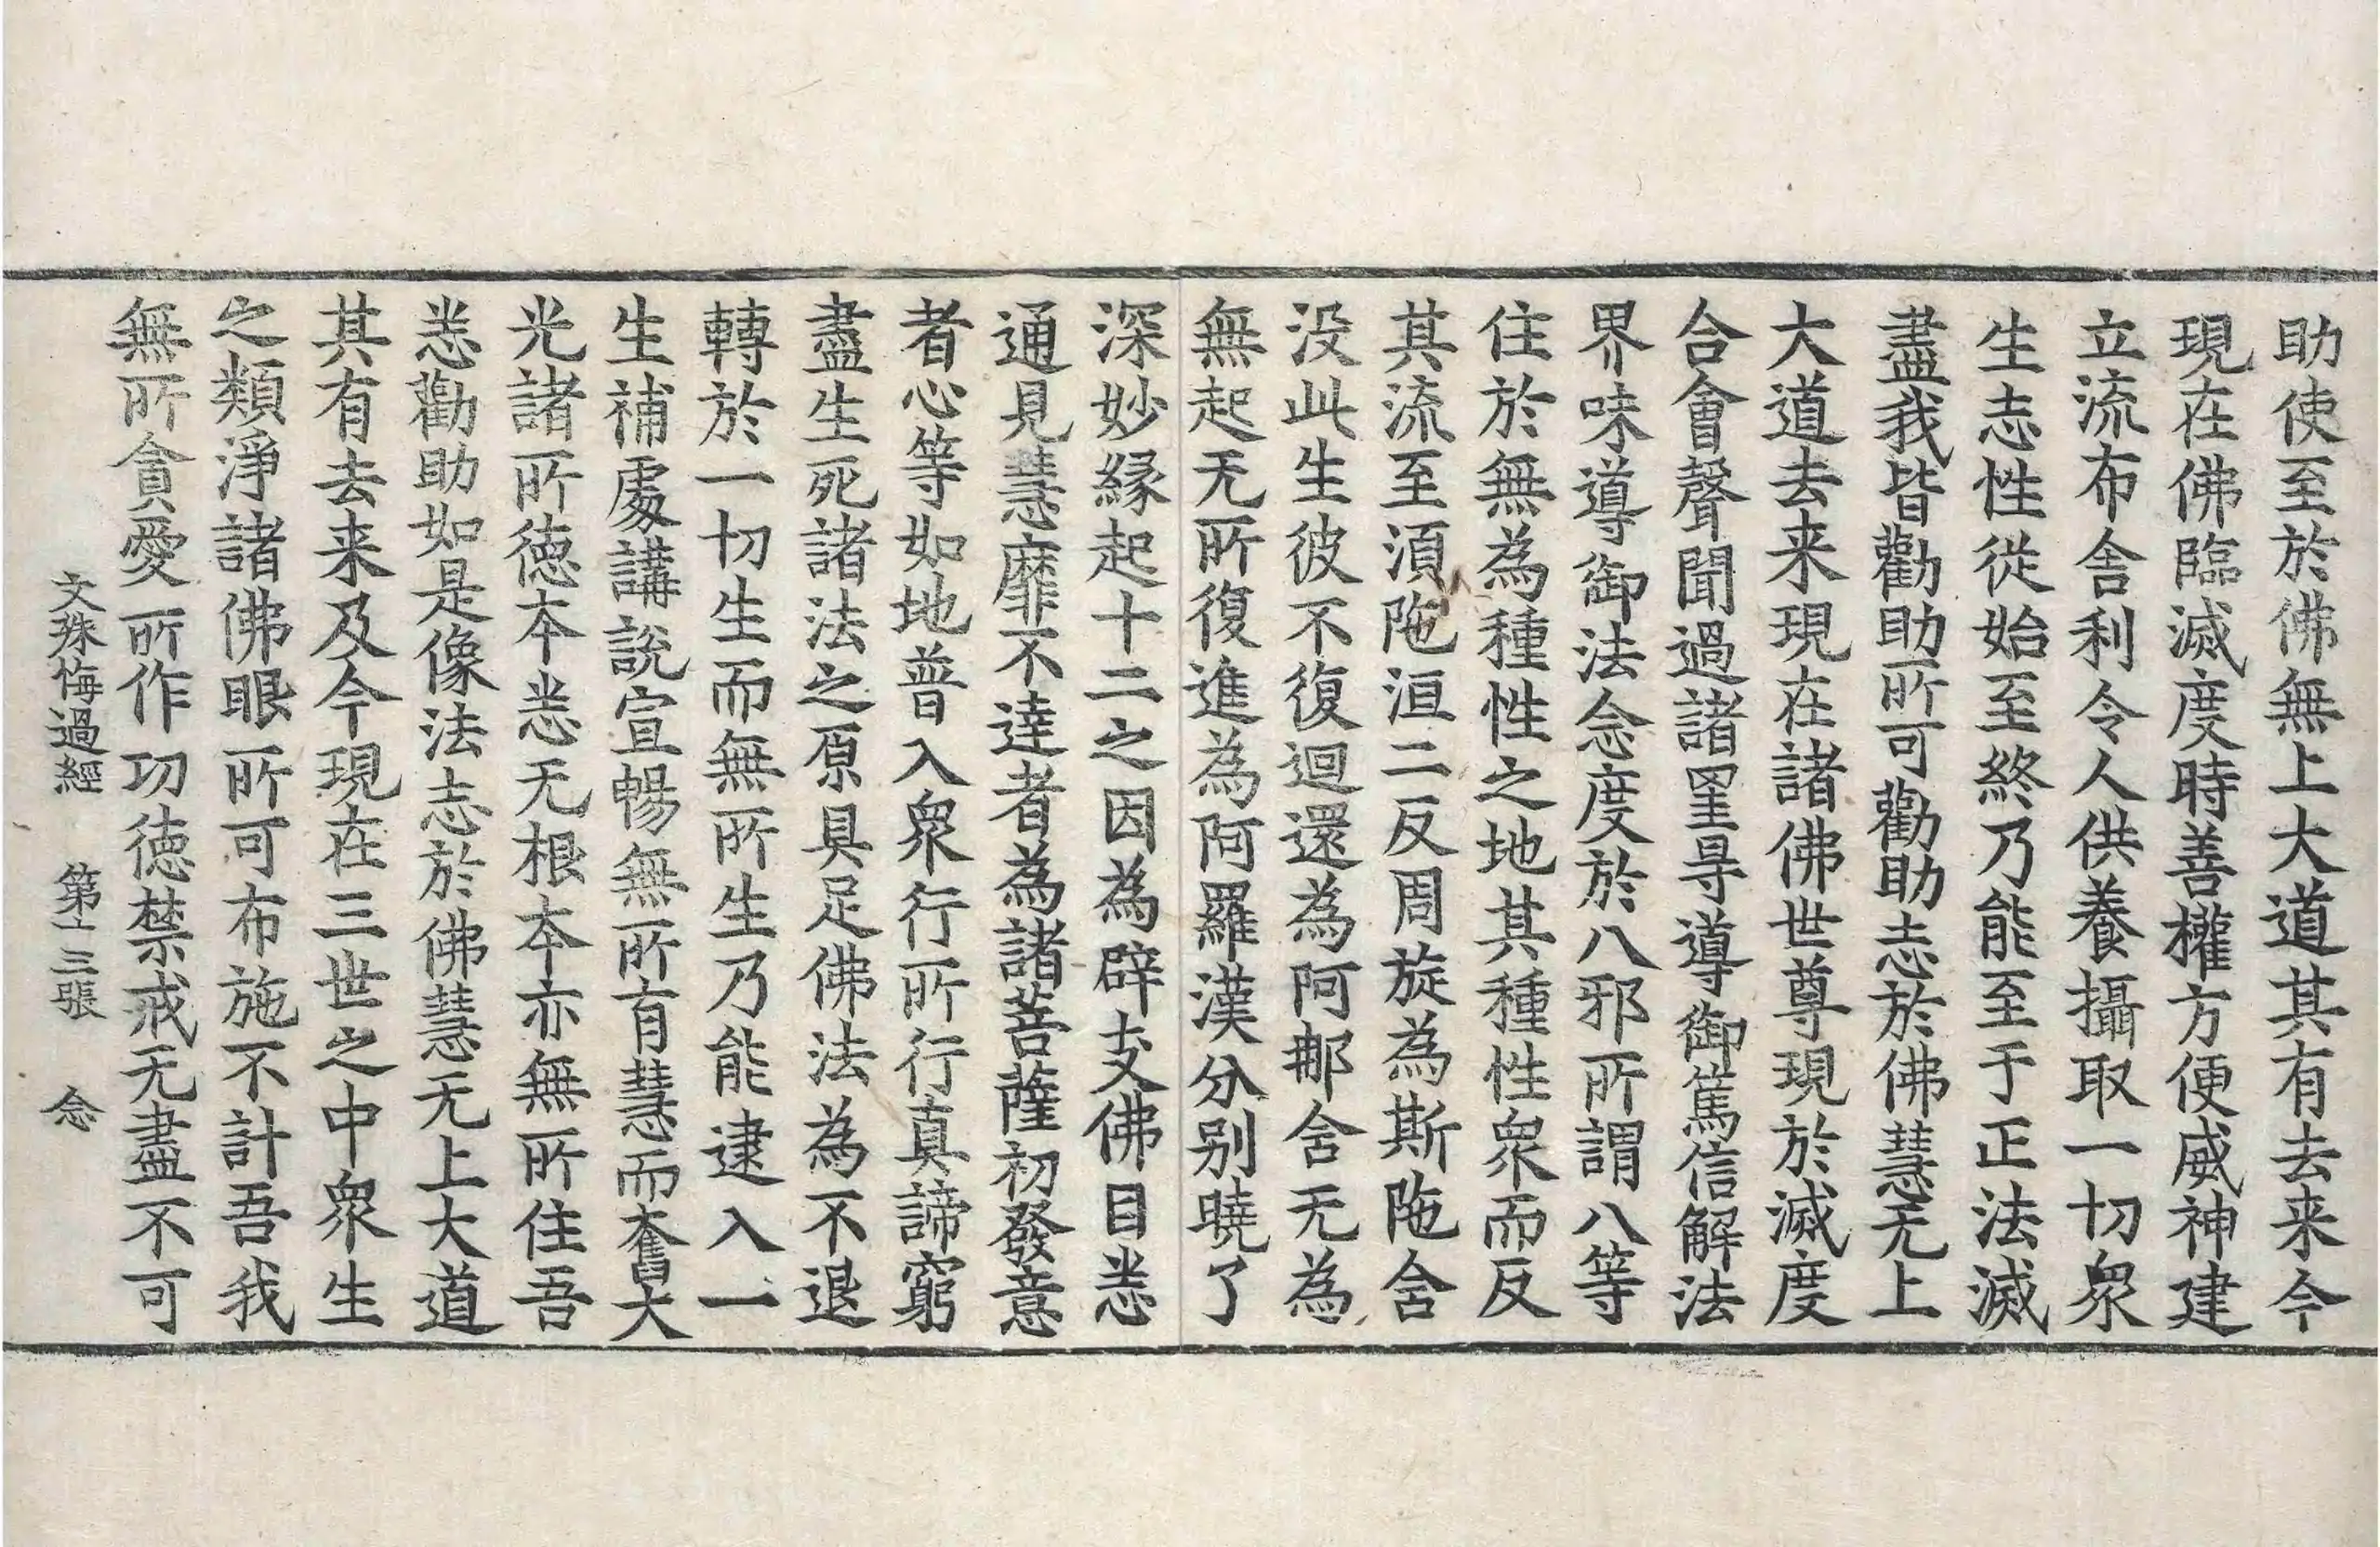 助使至於佛無上大道其有去来今
現在佛臨滅度時善權方便威神建
立流布舎利令人供養攝取一切衆
生志性從始至終乃能至于正法滅
盡我皆勸助所可勸助志於佛慧无上
大道去来現在諸佛世尊現於滅度
合會聲聞過諸罣导導御篤信解法
界味導御法念度於八邪所謂八等
住於無為種性之地其種性衆而反
其流至湏陁洹二反周旋為斯陁舎
没此生彼不復迴還為阿那舎无為
無起无所復進為阿羅漢分别曉了
深妙縁起十二之因為辟支佛目恙
通見慧靡不達者為諸菩薩初發意
者心等如地普入衆行所行真諦窮
盡生死諸法之原具足佛法為不退
轉於一切生而無所生乃能逮入一
生補處講說宣暢無所有慧而奮大
光諸所徳本恙无根本亦無所住吾
恙勸助如是像法志於佛慧无上大道
其有去来及今現在三世之中衆生
之類淨諸佛眼所可布施不計吾我
無所貪愛所作功徳禁戒无盡不可
文殊悔過經 第十三張 念